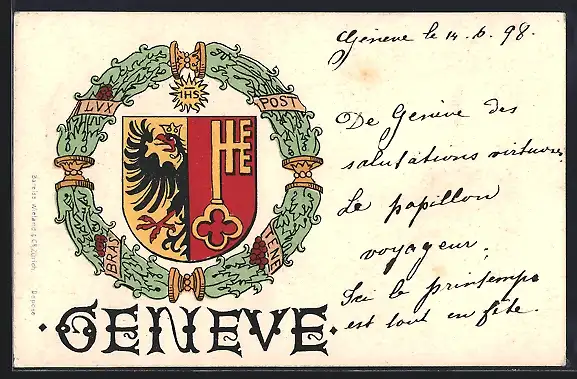 Genève le 14. 6. 98.
IHS
LVX
POST
TENE
BRAS
De Genève des
salutations
Le papillon
voyageur.
Ici le printemps
est tout en fête.
GENEVE
Dépose